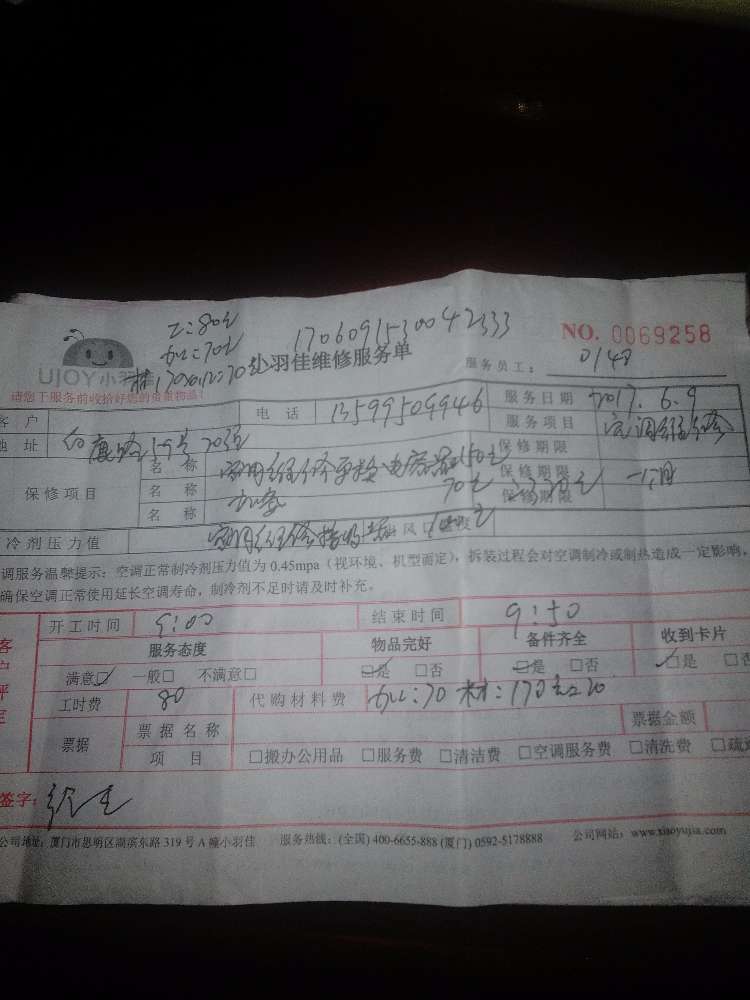 工:80元
1706091530042333
加工:70元
NO. 0069258
UJOY小羽佳
小羽佳维修服务单
服务员工: 0148
请您于服务前收拾好您的贵重物品!
客 户
电 话 13599509946
服务日期 2017.6.9
地 址
服务项目 空调维修
保修项目
名 称 空调维修更换电容器150元
保修期限
名 称 加氨 70元
保修期限 一个月
名 称
保修期限
冷剂压力值
风口
调服务温馨提示:空调正常制冷剂压力值为 0.45mpa(视环境、机型而定),拆装过程会对空调制冷或制热造成一定影响,
确保空调正常使用延长空调寿命,制冷剂不足时请及时补充。
开工时间 9:00
结束时间 9:50
服务态度 物品完好 备件齐全 收到卡片
满意☑ 一般□ 不满意□ □是 □否 □是 □否 ☑是 □否
工时费 80 代购材料费
票据 票据名称 票据金额
项 目 □搬办公用品 □服务费 □清洁费 □空调服务费 □清洗费
签字:
公司地址:厦门市思明区湖滨东路 319 号 A 幢小羽佳 服务热线:(全国) 400-6655-888 (厦门) 0592-5178888 公司网站:www.xiaoyujia.com